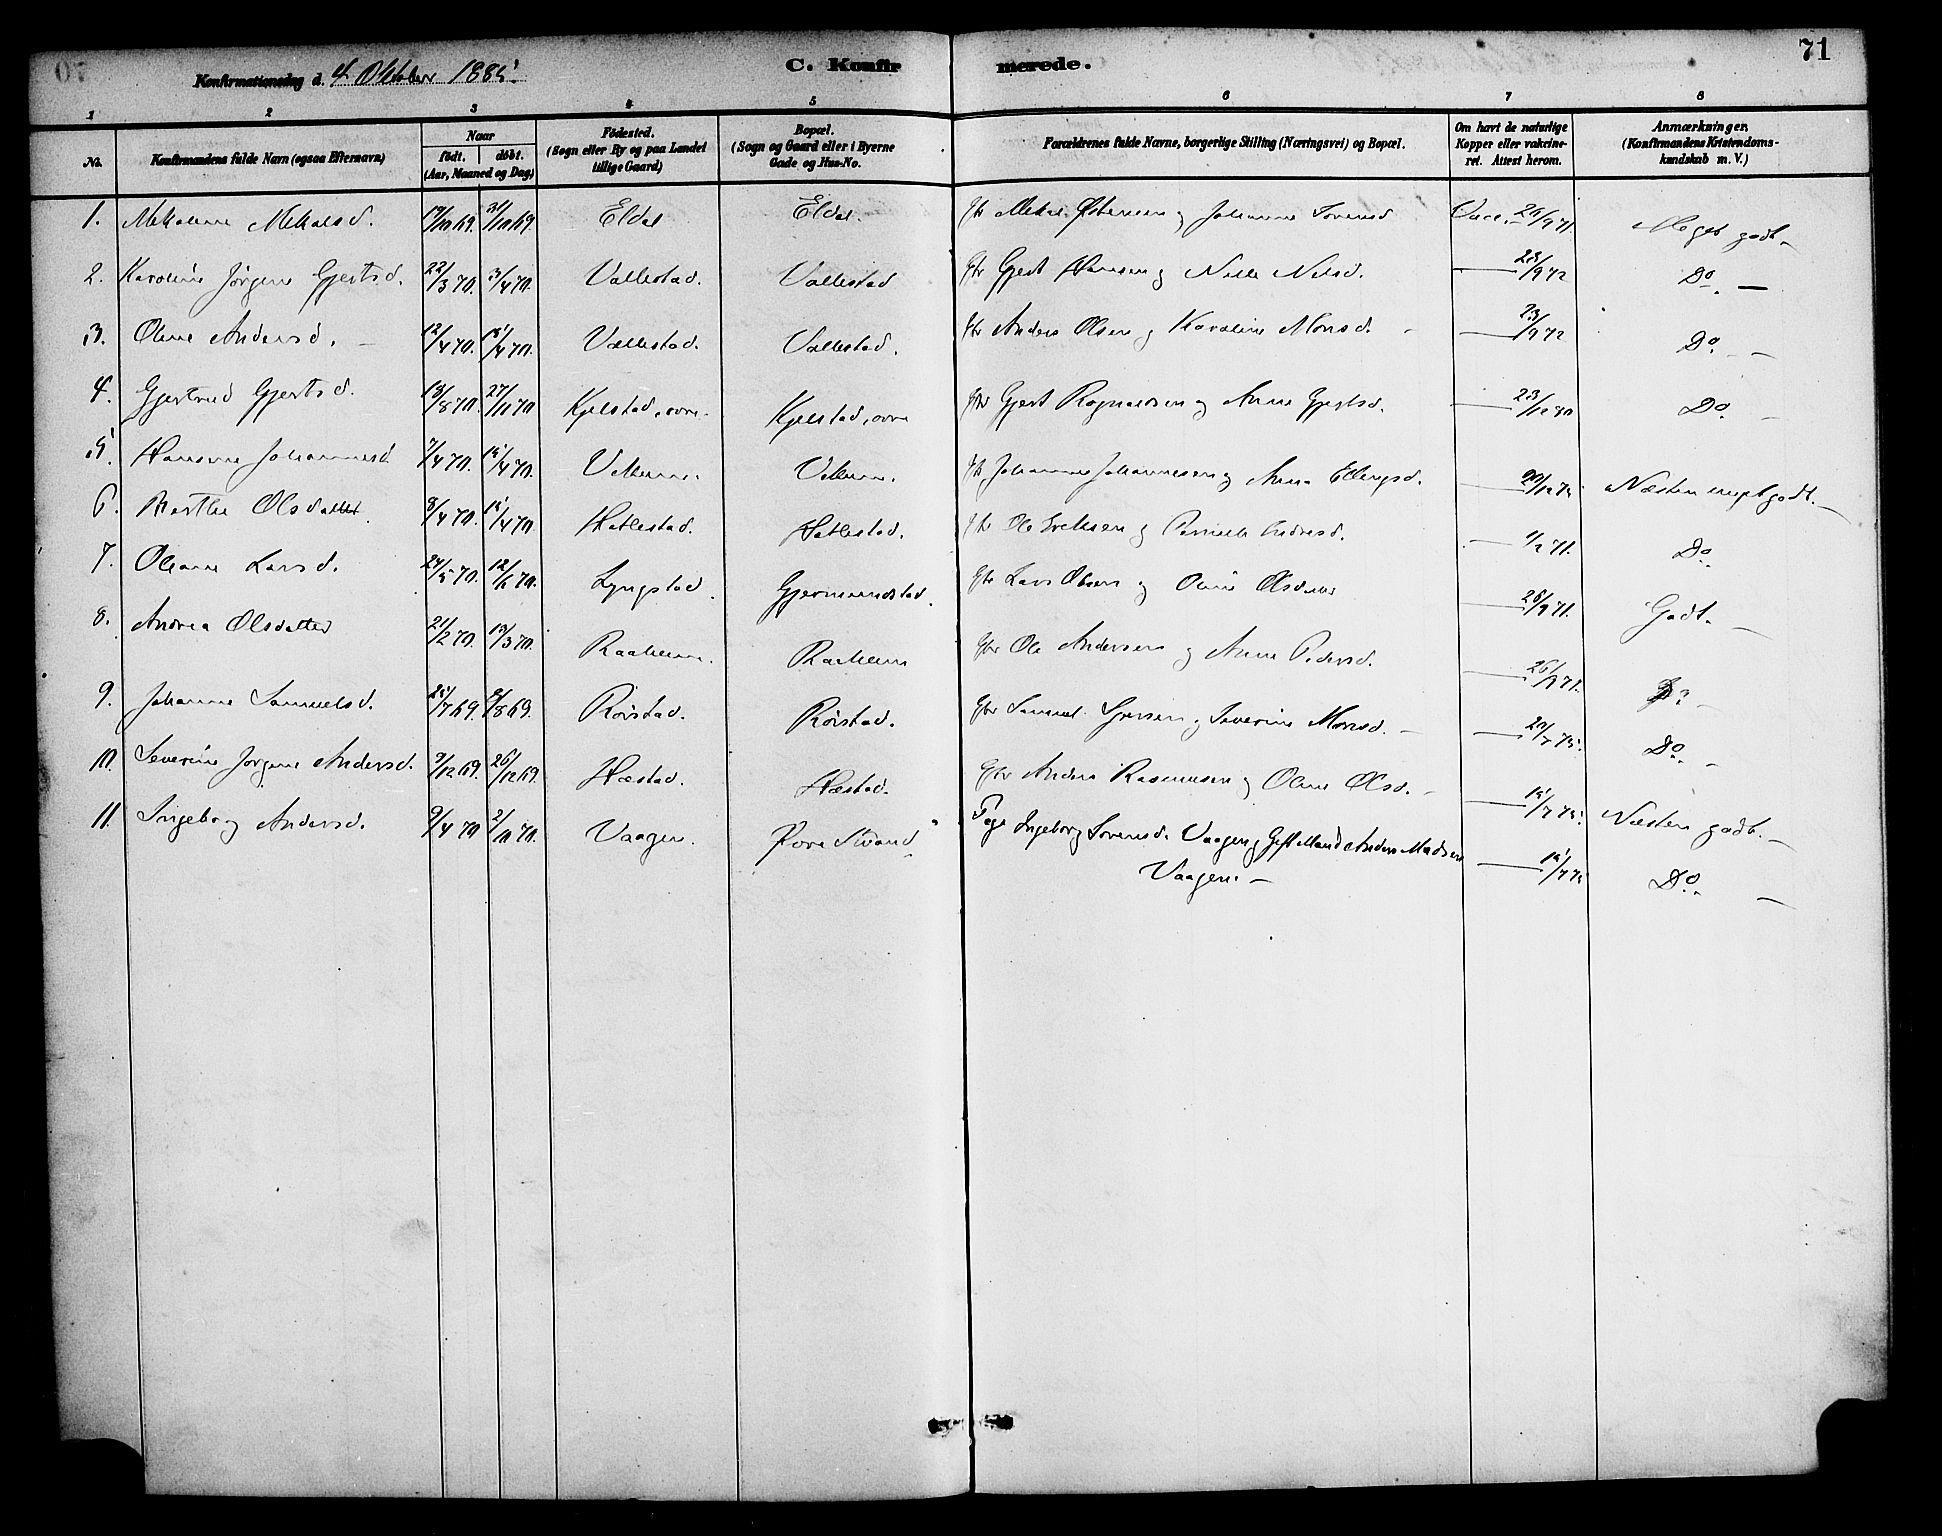 71
Konfirmationsdag d. 4 Oktober 1885.
C. Konfirmerede.
1 2 3 4 5 6 7 8
No. Konfirmandens fulde Navn (ogsaa Efternavn) Naar født. døbt. (Aar, Maaned og Dag) Fødested. (Sogn eller By og paa Landet tillige Gaard) Bopæl. (Sogn og Gaard eller i Byerne Gade og Hus-No. Forældrenes fulde Navne, borgerlige Stilling (Næringsvei) og Bopæl. Om havt de naturlige Kopper eller vaccineret. Attest herom. Anmærkninger. (Konfirmandens Kristendomskundskab m. V.)
1. Mekaline Mekalsd. 19/10 69. 31/10 69. Eldal Eldal. Mekal Østensen og Johanne Sørensd Vacc. 26/9 71. Meget godt.
2. Karoline Jørgine Gjertsd. 22/3 70. 3/4 70. Vallestad. Vallestad Gjert Hansen og Nille Nilsd. — 23/9 72 Do. —
3. Oline Andersd. 12/4 70. 18/4 70. Vallestad. Vallestad. Anders Olsen og Karoline Monsd. — 23/9 72 Do. —
4. Gjertrud Gjertsd. 13/8 70. 27/11 70 Kjelstad, øvre. Kjelstad, øvre Gjert Ragnaldsen og Anne Gjertsd. — 23/12 70 Do. —
5. Hansine Johannesd. 7/4 70. 15/4 70. Vellum. Johannes Johannesen og Anna Ellingsd. Næsten meget godt.
6. Marthe Olsdatter. 8/4 70. 15/4 70. Hatlestad. Hatlestad. Ole Eriksen og Pernille Andersd. — 1/2 71. Do.
7. Oliane Larsd. 24/5 70. 12/6 70. Lyngstad. Gjermundstad. Lars Olsen og Oline Olsdatter — 26/9 71. Godt. —
8. Andrea Olsdatter 21/2 70. 13/3 70. Raaheim. Raaheim Ole Andersen og Anne Pedersd. — 26/9 71. Do —
9. Johanne Samuelsd. 25/7 69. 8/8 69. Rørstad. Rørstad. Samuel og Severine Monsd. — 20/7 75. Do. —
10. Severine Jørgine Andersd. 9/12 69. 26/12 69. Hæstad. Hæstad. Anders Rasmussen og Oline Olsd. — 15/7 75. Næsten godt. —
11. Ingeborg Andersd. 9/4 70 2/10 70. Vaagen. Pige Ingeborg Sørensd. Vaagen og Gift Mand Anders Madsen — 15/7 75 Do. —
Vaagen. —